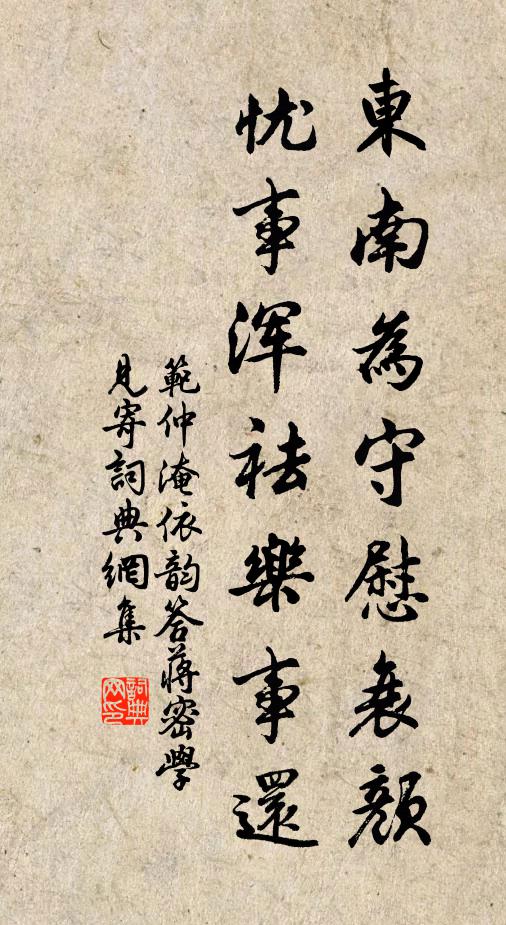 東南為守慰衰顏
忧事渾祛樂事還
範仲淹依韵答蔣密學
見寄詞典網集
詞典
网印